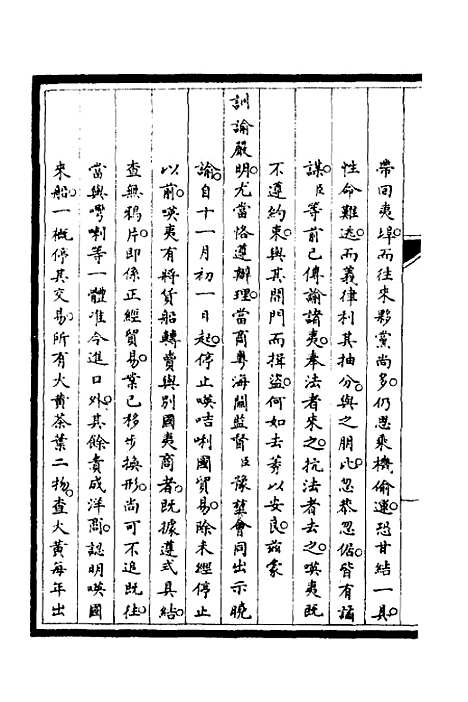 帶回夷埠。而往來夥黨尚多。仍思乘機偷運。恐甘結一具。
性命難逃。而義律利其抽分。與之朋比。忽恭忽倨。皆有詭
謀。臣等前已傳諭諸夷。奉法者來之。抗法者去之。𠸄夷既
不遵約束。與其開門而揖盜。何如去莠以安良。茲蒙
訓諭嚴明。尤當恪遵辦理。當商粵海關監督臣豫堃會同出示曉
諭。自十一月初一日起。停止𠸄咭唎國貿易。除未經停止
以前。𠸄夷有將貨船轉賣與別國夷商者。既據遵式具結。
查無鴉片。即係正經貿易。業已移步換形。尚可不追既往。
當與嘚喇等一體准令進口外。其餘責成洋商。認明𠸄國
來船。一概停其交易。所有大黃茶葉二物。查大黃每年出